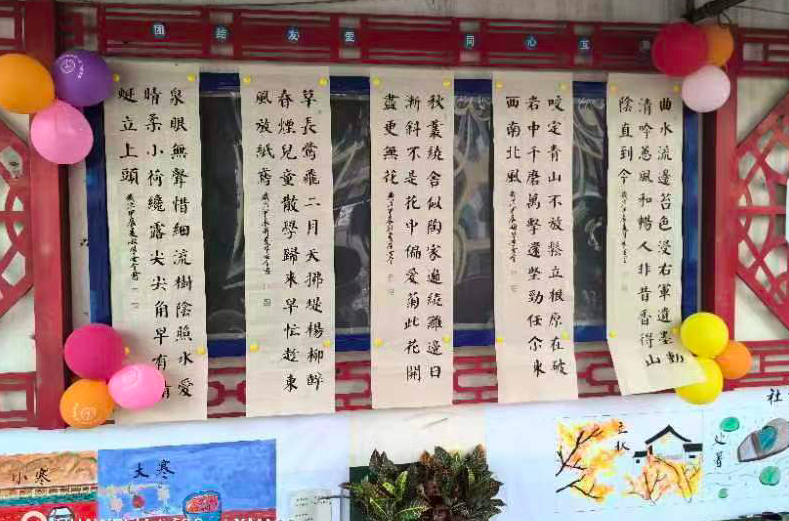 团结友爱 同心互
曲水流邊苔色浸右軍遺墨動
清吟蕙風和暢人非昔香得山
陰直到今
咬定青山不放鬆立根原在破
岩中千磨萬擊還堅勁任尔東
西南北風
秋叢繞舍似陶家遍繞籬邊日
漸斜不是花中偏愛菊此花開
盡更無花
草長鶯飛二月天拂堤楊柳醉
春煙兒童散學歸來早忙趁東
風放紙鳶
泉眼無聲惜細流樹陰照水愛
晴柔小荷纔露尖尖角早有蜻
蜓立上頭
小寒
大寒
立秋
处暑
社